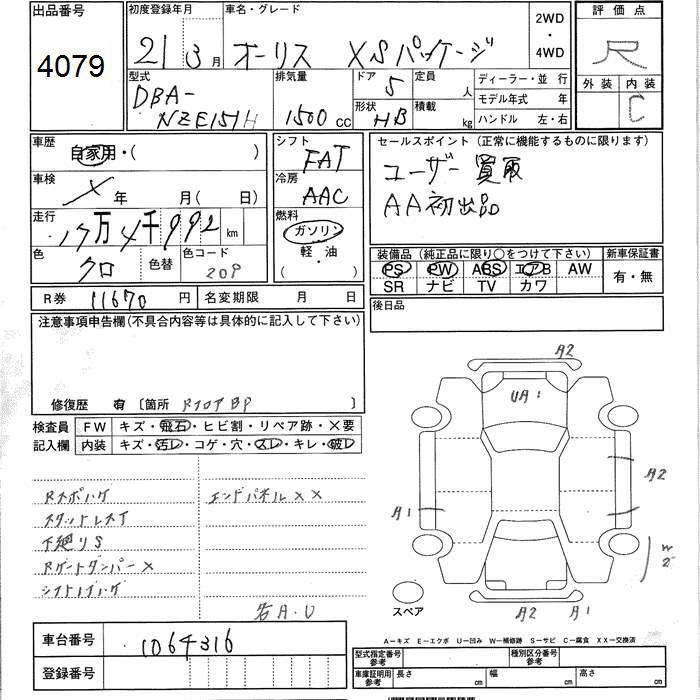 出品番号
4079
初度登録年月
21 3 月
車名・グレード
オーリス XSパッケージ
2WD
・
4WD
評価点
R
外装 内装
C
型式
DBA-
NZE151H
排気量
1500 cc
ドア 5
形状 HB
定員 人
積載 kg
ディーラー・並 行
モデル年式 年
ハンドル 左・右
車歴
自家用・( )
車検
年 月( 日)
走行
17万4千992 km
色
クロ
色替
色コード
209
シフト
FAT
冷房
AAC
燃料
ガソリン
・
軽・油
( )
セールスポイント (正常に機能するものに限ります)
ユーザー買取
AA初出品
装備品 (純正品に限り○をつけて下さい)
新車保証書
PS PW ABS エアB AW
SR ナビ TV カワ
有・無
R券 11670 円
名変期限 月 日
後日品
注意事項申告欄(不具合内容等は具体的に記入して下さい)
修復歴 有 〔箇所 RフロアBP 〕
検査員
記入欄
FW キズ・飛石・ヒビ割・リペア跡・×要
内装 キズ・汚レ・コゲ・穴・スレ・キレ・破レ
Rスポハゲ
エンドパネル××
スタットレスT
下廻りS
Rゲートダンパー×
シフトノブハゲ
若A.U
A2
UA1
A2
A1
W2
A2 A1
スペア
A-キズ E-エクボ U-凹み W-補修跡 S-サビ C-腐食 XX-交換済
車台番号
1064316
登録番号
型式指定番号
参考
種別区分番号
参考
車庫証明用
参考
長さ cm
幅 cm
高さ cm